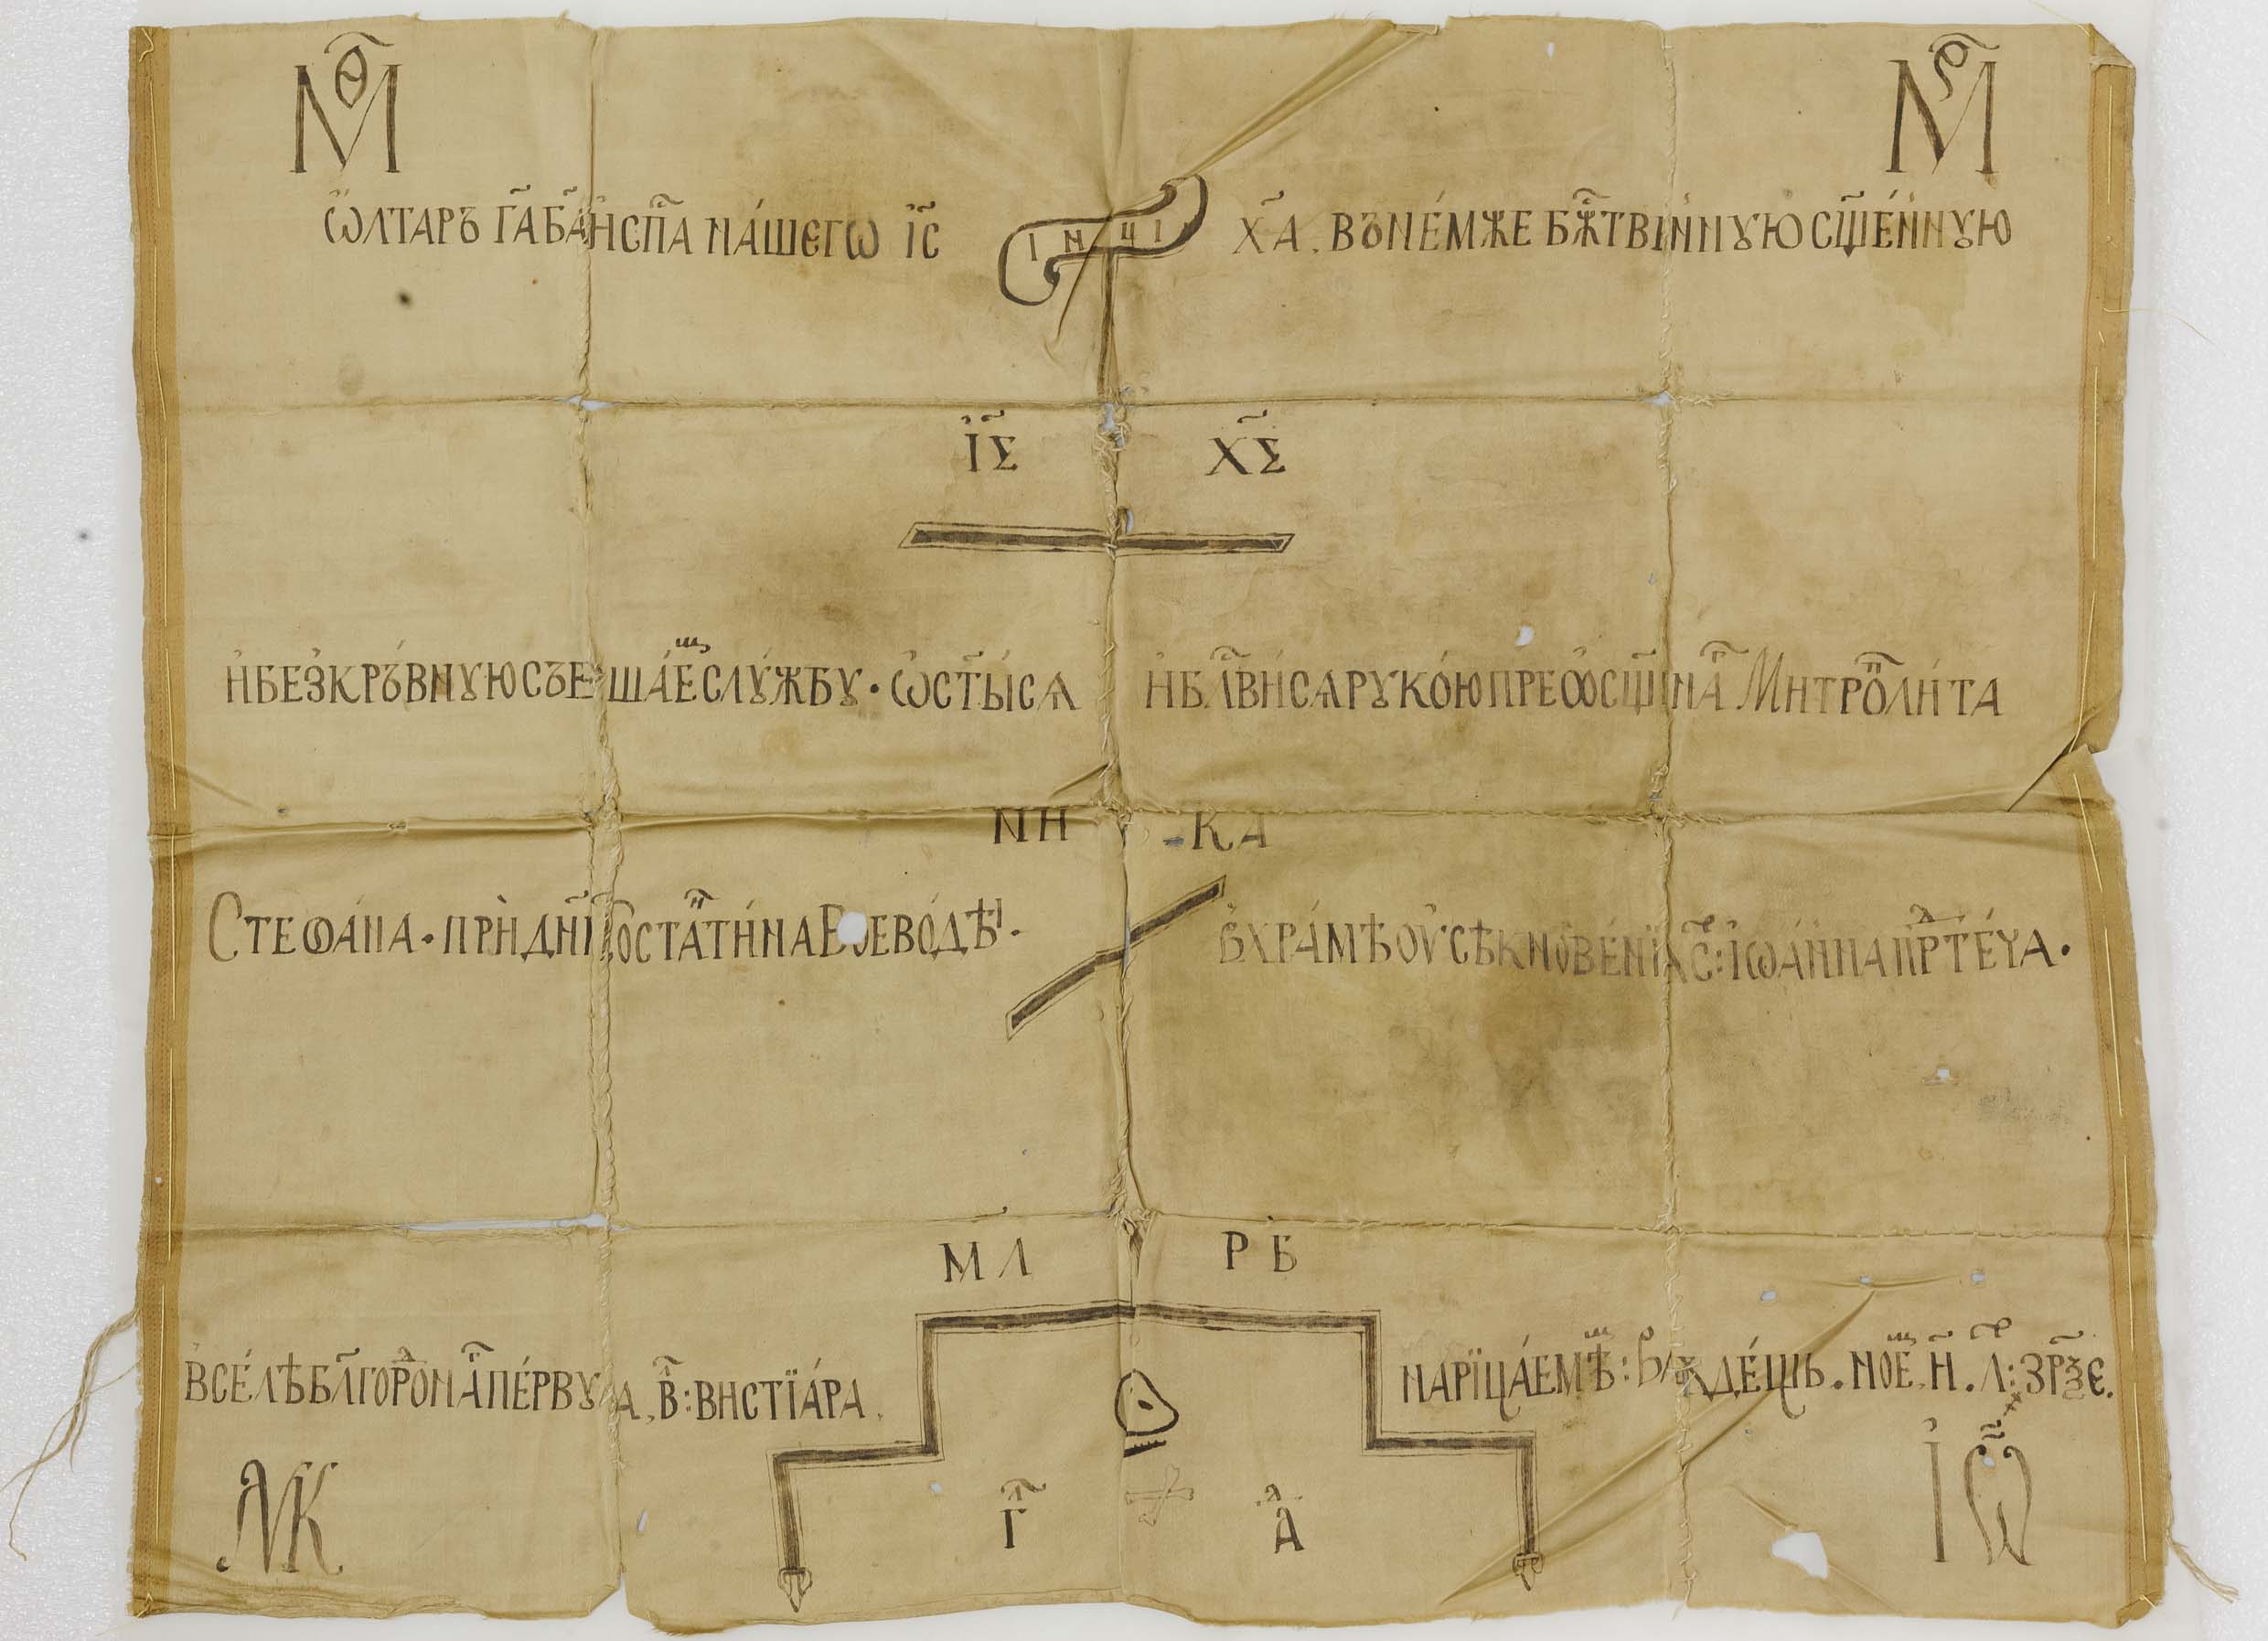 М҃Ѳ М҃Р
Ѡ҆лтаръ Гд҃а Б҃а и҆ Сп҃са на́шегѡ І҆с҃ І Н Ц І Х҃а. въ не́мже бж҃твін́ную сщ҃е́нную
І҆С҃ Х҃С
и҆ безкръ́вную съве шае҆щ слꙋ́жбꙋ · ѡ҆ст҃ы́сѧ и҆ бл҃ви́сѧ рꙋко́ю преѡсщ҃інаг҃ Митрополи́та
НИ КА
Стефа́на · при дн҃і Костатти́на Вꙋево́дѣ. в҆ хра́мѣ ᲂу҆сѣкнове́нїѧ с҃: і҆ѡа́нна пр҃те́ча ·
МЛ РБ
в҆ се́лѣ бл҃город҃наг҃ пе́рвꙋ а, в҃: вистїа́ра, нарїца́емѣ҃: де́щь. ное҃, и҃. л҃: зр҃ѯє.
Г҃ А҃
МК ІѠ҃